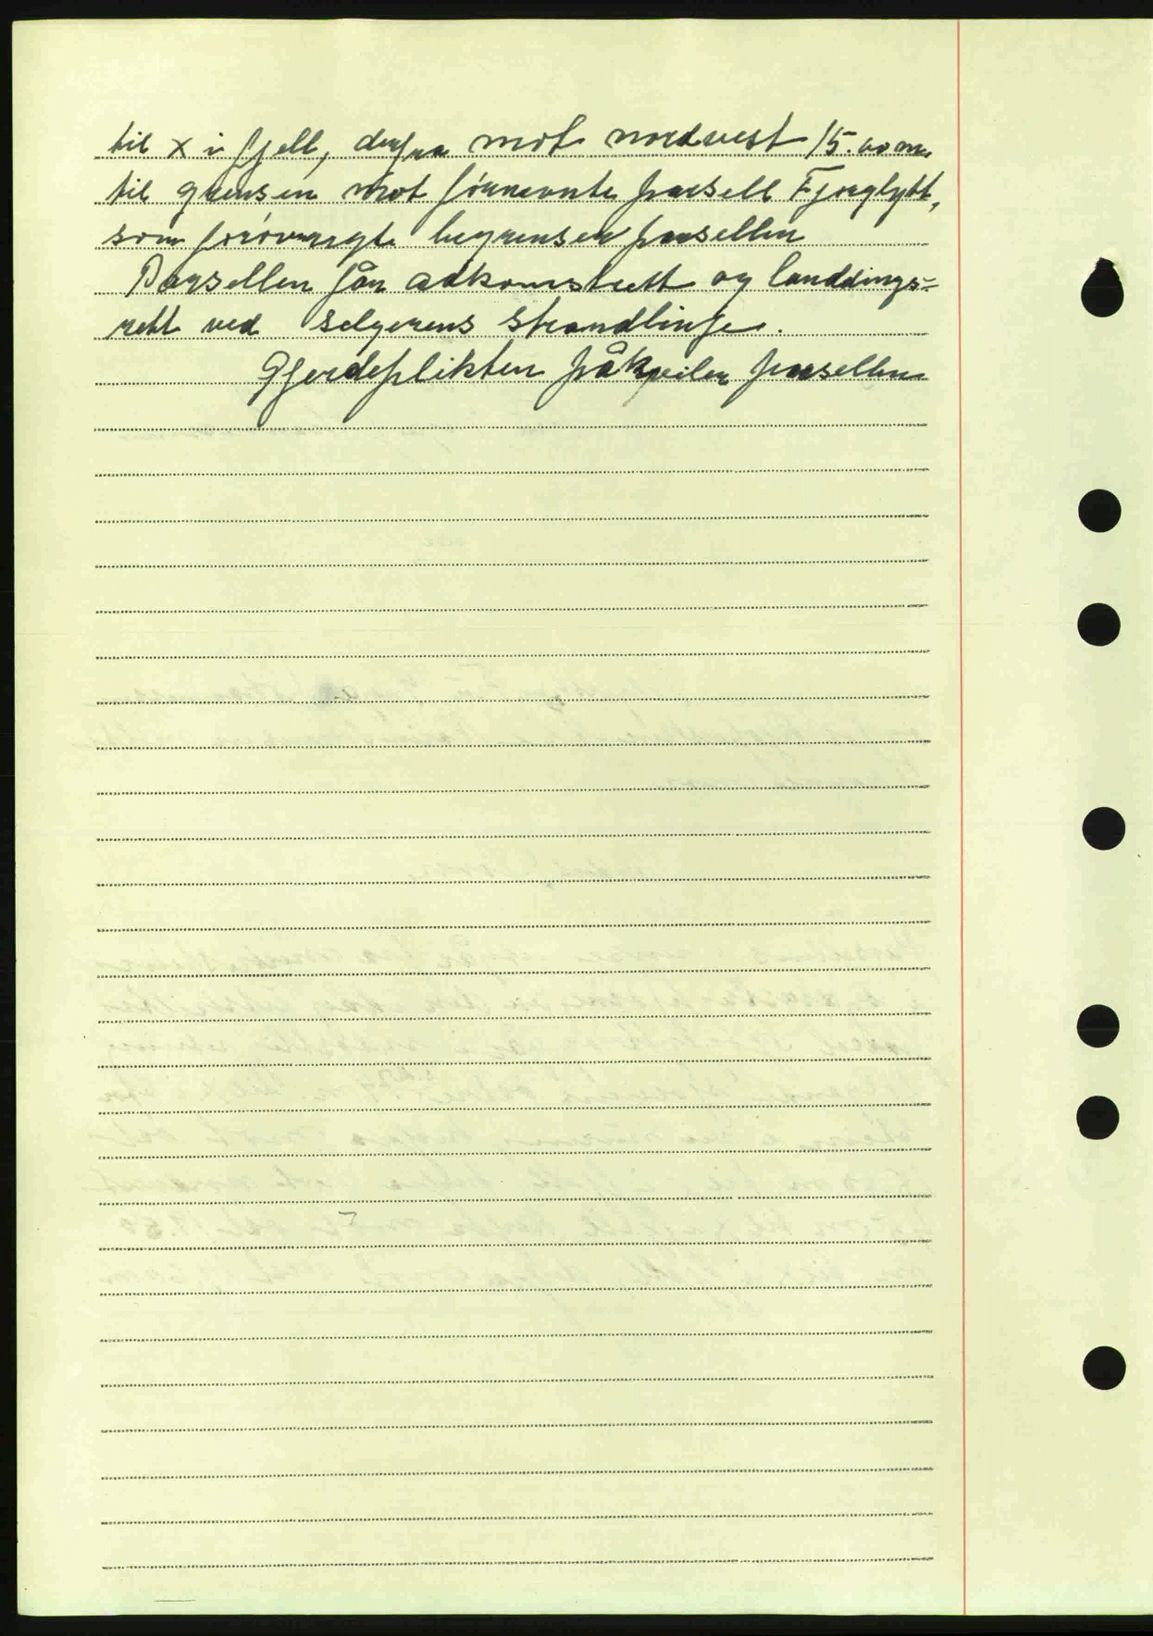 til x i fjell, derfra mot nordvest 15.00 m.
til grensen mot førnevnte parsell Fjorglytt,
som forøvrigt begrenser parsellen
Parsellen får adkomstrett og landdings-
rett ved selgerens strandlinje.
Gjerdeplikten påkviler parsellen